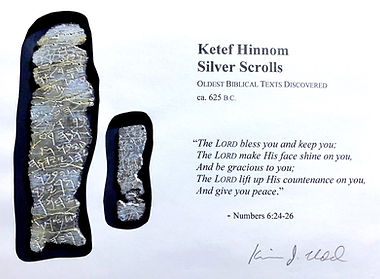 Ketef Hinnom
Silver Scrolls
OLDEST BIBLICAL TEXTS DISCOVERED
ca. 625 B.C.
“The LORD bless you and keep you;
The LORD make His face shine on you,
And be gracious to you;
The LORD lift up His countenance on you,
And give you peace.”
- Numbers 6:24-26